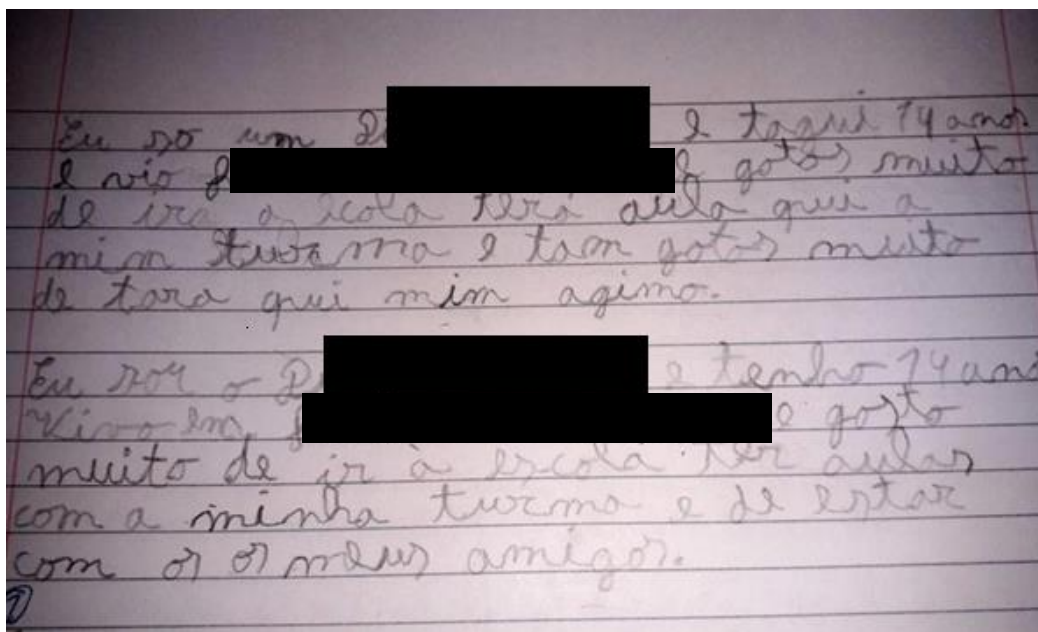 Eu so um e taqui 14 anos
e vio gotos muito
de ira a scola terá aula qui a
mim turma e tam gotos muito
de tara qui mim agimo.
Eu sou o e tenho 14 ano
Vivo em e gosto
muito de ir à escola ter aulas
com a minha turma e de estar
com os os meus amigos.